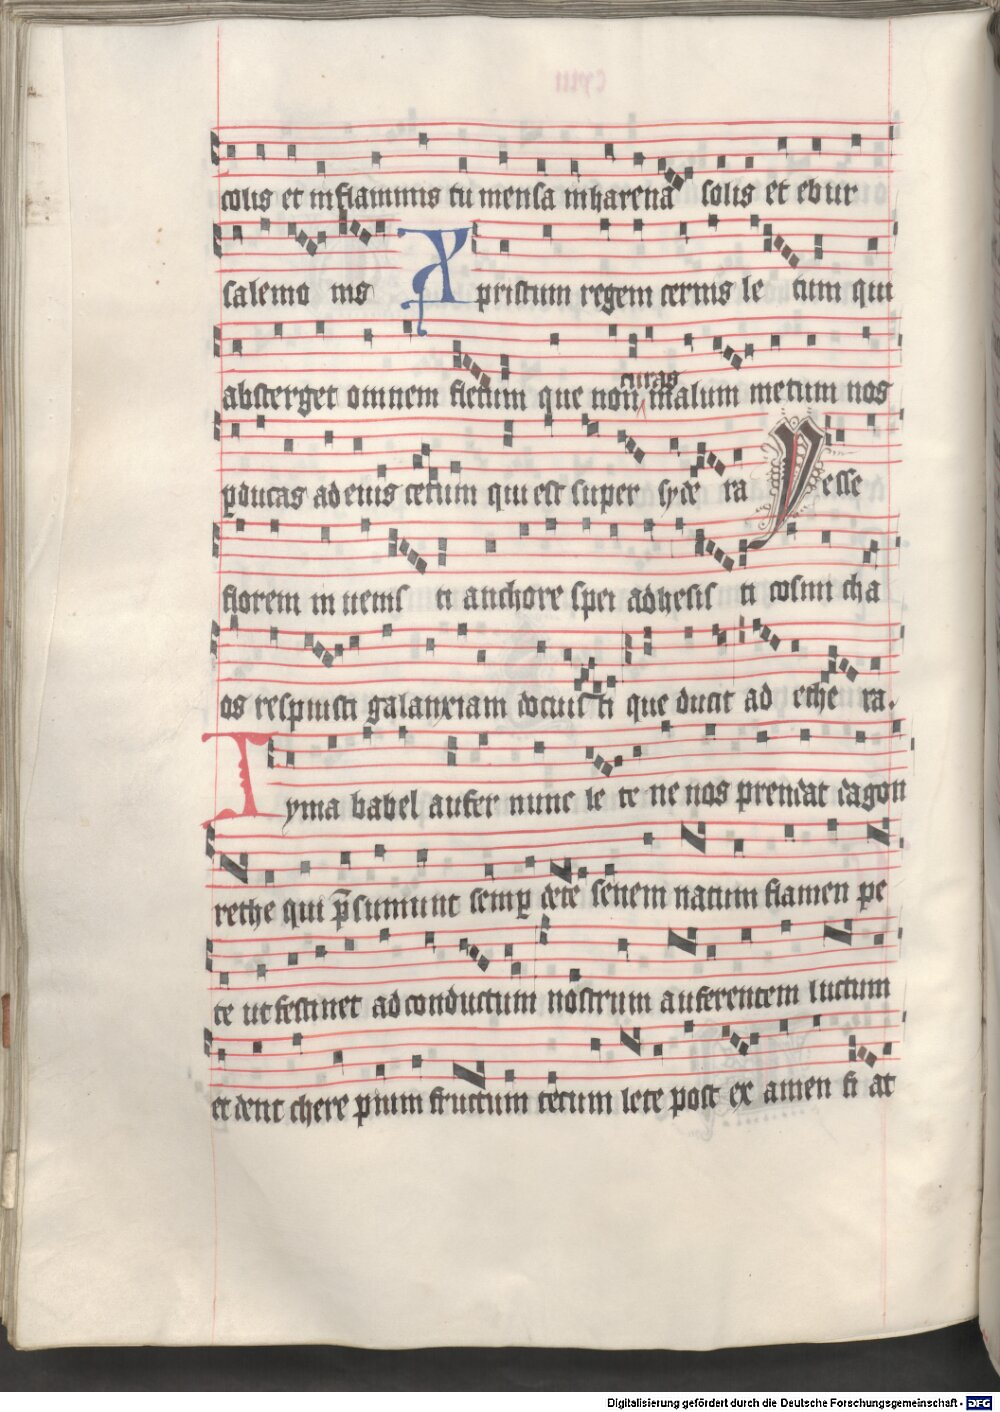 colis et in flammis tu mensa in harena solis et ebur
salemo nis Xpristum regem cernis le tum qui
absterget omnem fletum que non curas malum metum nos
pducas ad euis cetum qui est super syde ra Jesse
florem in uenis ti anchore spei adhesis ti cosmi cha
os respuisti galanxiam docuis ti que ducit ad ethe ra.
Tyma babel aufer nunc le te ne nos prendat dagon
rethe qui psumunt semp dete senem natum flamen pe
te ut festinet ad conductum nostrum auferentem luctum
et dent chere pnium fructum tecum lete post ex amen fi at
Digitalisierung gefördert durch die Deutsche Forschungsgemeinschaft - DFG